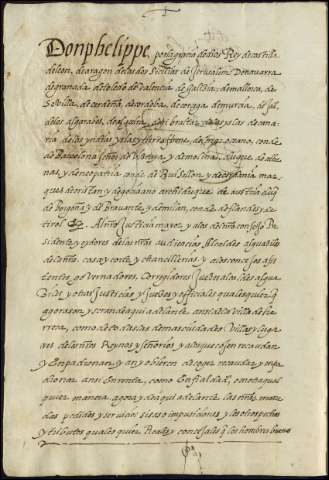 Don phelippe, por la graçia de dios Rey de castilla
de leon, de aragon de las dos Secilias de Jerusalem De navarra
de granada, de toledo de valencia de galizia, de mallorca, de
Sevilla, de cerdeña, de cordova, de corçega de murcia, de Jaē
de los algarbes, de algezira, de gibraltar de las yslas de cana
ria, de las yndias yslas y tierra firme, del mar oceano, conde
de Barcelona señor de Vizcaya, y de molina, duque de athe
nas, y de neopatria, conde de Ruisellon, y de cerdania, mar
ques de oristan y de goçiano archiduque de austria duq̄
de borgoña y de Bravante, y de milan, conde de flandes y de
tirol &c. Al nr̄o Justicia mayor, y a los del nr̄o consejo Pre
sidente, y oydores de las nr̄as audiencias, Alcaldes alguaziles
de la nr̄a casa y corte, y chancillerias, y a los concejos asis
tentes, governadores, Corregidores Juezes alcaldes alguа
ziles, y otras Justicias, y Juezes, y officiales qualesquier, q̄
agora son, y seran de aqui adelante, ansi de la Villa de he
rrera, como de todas las demas ciudades Villas y luga
res de los nr̄os Reynos y señorios, y a los que cojen, recaudan
y Empadronan, y an y obieren de coger, recaudar, y enpa
dronar, ansi En renta, como En fialdad, o en otra qual
quier manera, agora y de aqui adelante, las nr̄as mone
das pedidos y servicios, sisas o imposiciones, y los otros pechos
y tributos quales quier Reales y concejales q̄ los hombres buenos